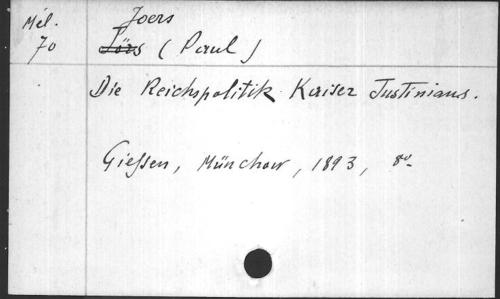 Mél. Joers
70 Jörs (Paul)
Die Reichspolitik Kaiser Justinians.
Giessen, Münchow, 1893, 8o